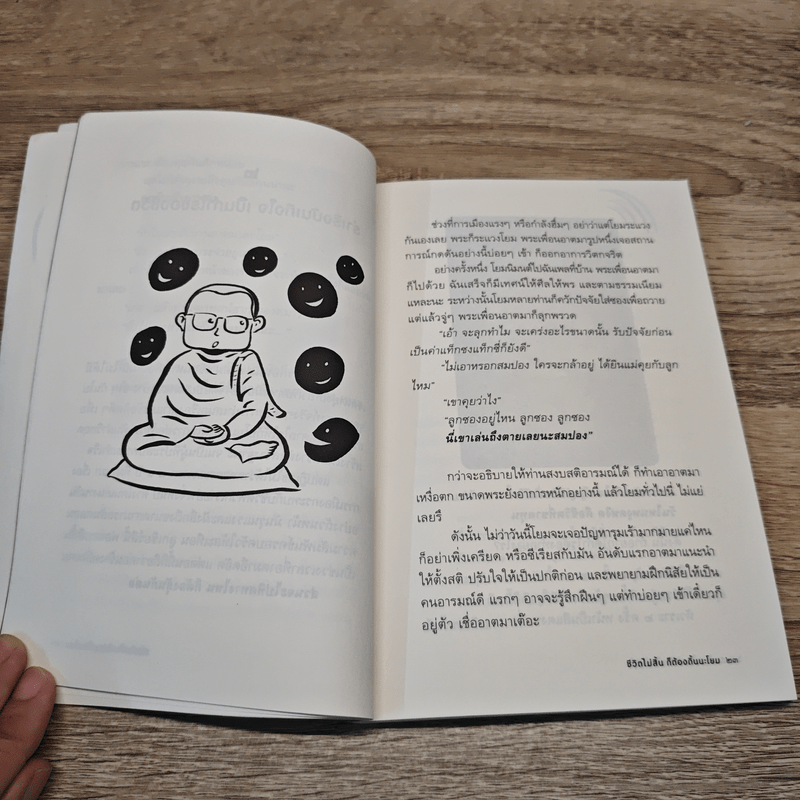 ช่วงที่การเมืองแรงๆ หรือกำลังฮึ่มๆ อย่าว่าแต่โยมระแวง
กันเองเลย พระก็ระแวงโยม พระเพื่อนอาตมารูปหนึ่งเจอสถาน-
การณ์กดดันอย่างนี้บ่อยๆ เข้า ก็ออกอาการวิตกจริต
อย่างครั้งหนึ่ง โยมนิมนต์ไปฉันเพลที่บ้าน พระเพื่อนอาตมา
ก็ไปด้วย ฉันเสร็จก็มีเทศน์ให้ศีลให้พร และตามธรรมเนียม
แหละนะ ระหว่างนั้นโยมหลายท่านก็ควักปัจจัยใส่ซองเพื่อถวาย
แต่แล้วจู่ๆ พระเพื่อนอาตมาก็ลุกพรวด
“เอ้า จะลุกทำไม จะเคร่งอะไรขนาดนั้น รับปัจจัยก่อน
เป็นค่าแท็กซงแท็กซี่ก็ยังดี”
“ไม่เอาหรอกสมปอง ใครจะกล้าอยู่ ได้ยินแม่คุยกับลูก
ไหม”
“เขาคุยว่าไง”
“ลูกซองอยู่ไหน ลูกซอง ลูกซอง
นี่เขาเล่นถึงตายเลยนะสมปอง”
กว่าจะอธิบายให้ท่านสงบสติอารมณ์ได้ ก็ทำเอาอาตมา
เหงื่อตก ขนาดพระยังอาการหนักอย่างนี้ แล้วโยมทั่วไปนี่ ไม่แย่
เลยรึ
ดังนั้น ไม่ว่าวันนี้โยมจะเจอปัญหารุมเร้ามากมายแค่ไหน
ก็อย่าเพิ่งเครียด หรือซีเรียสกับมัน อันดับแรกอาตมาแนะนำ
ให้ตั้งสติ ปรับใจให้เป็นปกติก่อน และพยายามฝึกนิสัยให้เป็น
คนอารมณ์ดี แรกๆ อาจจะรู้สึกฝืนๆ แต่ทำบ่อยๆ เข้าเดี๋ยวก็
อยู่ตัว เชื่ออาตมาเต๊อะ
ชีวิตไม่สิ้น ก็ต้องดิ้นนะโยม ๒๓